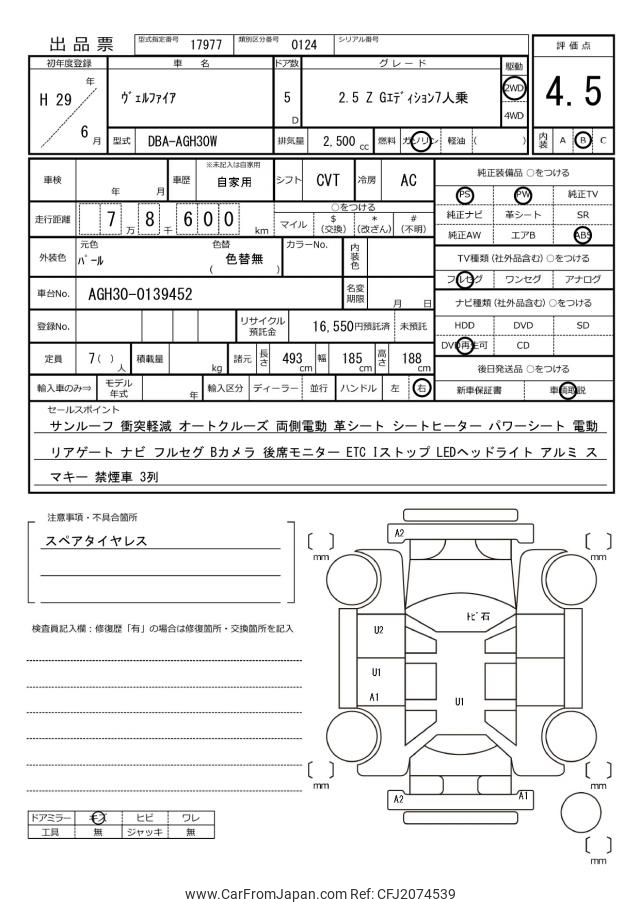 出品票
型式指定番号 17977 類別区分番号 0124 シリアル番号
評価点
4.5
内装 A B C
初年度登録 車名 ドア数 グレード 駆動
H 29 年 6 月
ヴェルファイア
5 D
2.5 Z Gエディション7人乗
2WD
4WD
型式 DBA-AGH30W 排気量 2,500 cc 燃料 ガソリン 軽油 ( )
車検 年 月 車歴 ※未記入は自家用 自家用 シフト CVT 冷房 AC
走行距離 7 万 8 千 6 0 0 km
○をつける
マイル $ (交換) * (改ざん) # (不明)
外装色 元色 パール 色替 ( 色替無 ) カラーNo. 内装色
車台No. AGH30-0139452 名変期限 月 日
登録No. リサイクル預託金 16,550円預託済 未預託
定員 7( ) 人 積載量 kg 諸元 長さ 493 cm 幅 185 cm 高さ 188 cm
輸入車のみ⇒ モデル年式 年 輸入区分 ディーラー 並行 ハンドル 左 右
純正装備品 ○をつける
PS PW 純正TV
純正ナビ 革シート SR
純正AW エアB ABS
TV種類(社外品含む) ○をつける
フルセグ ワンセグ アナログ
ナビ種類(社外品含む) ○をつける
HDD DVD SD
DVD再生可 CD
後日発送品 ○をつける
新車保証書 車輌取説
セールスポイント
サンルーフ 衝突軽減 オートクルーズ 両側電動 革シート シートヒーター パワーシート 電動
リアゲート ナビ フルセグ Bカメラ 後席モニター ETC Iストップ LEDヘッドライト アルミ ス
マキー 禁煙車 3列
注意事項・不具合箇所
スペアタイヤレス
検査員記入欄：修復歴「有」の場合は修復箇所・交換箇所を記入
ドアミラー キズ ヒビ ワレ
工具 無 ジャッキ 無
A2
[ ] mm
[ ] mm
トビ石
U2
U1
A1
U1
[ ] mm
[ ] mm
A2
A1
[ ] mm
www.CarFromJapan.com Ref: CFJ2074539